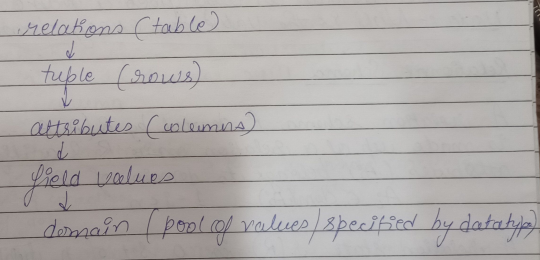 relations (table)
↓
tuple (rows)
↓
attributes (columns)
↓
field values
↓
domain (pool of values/specified by datatype)